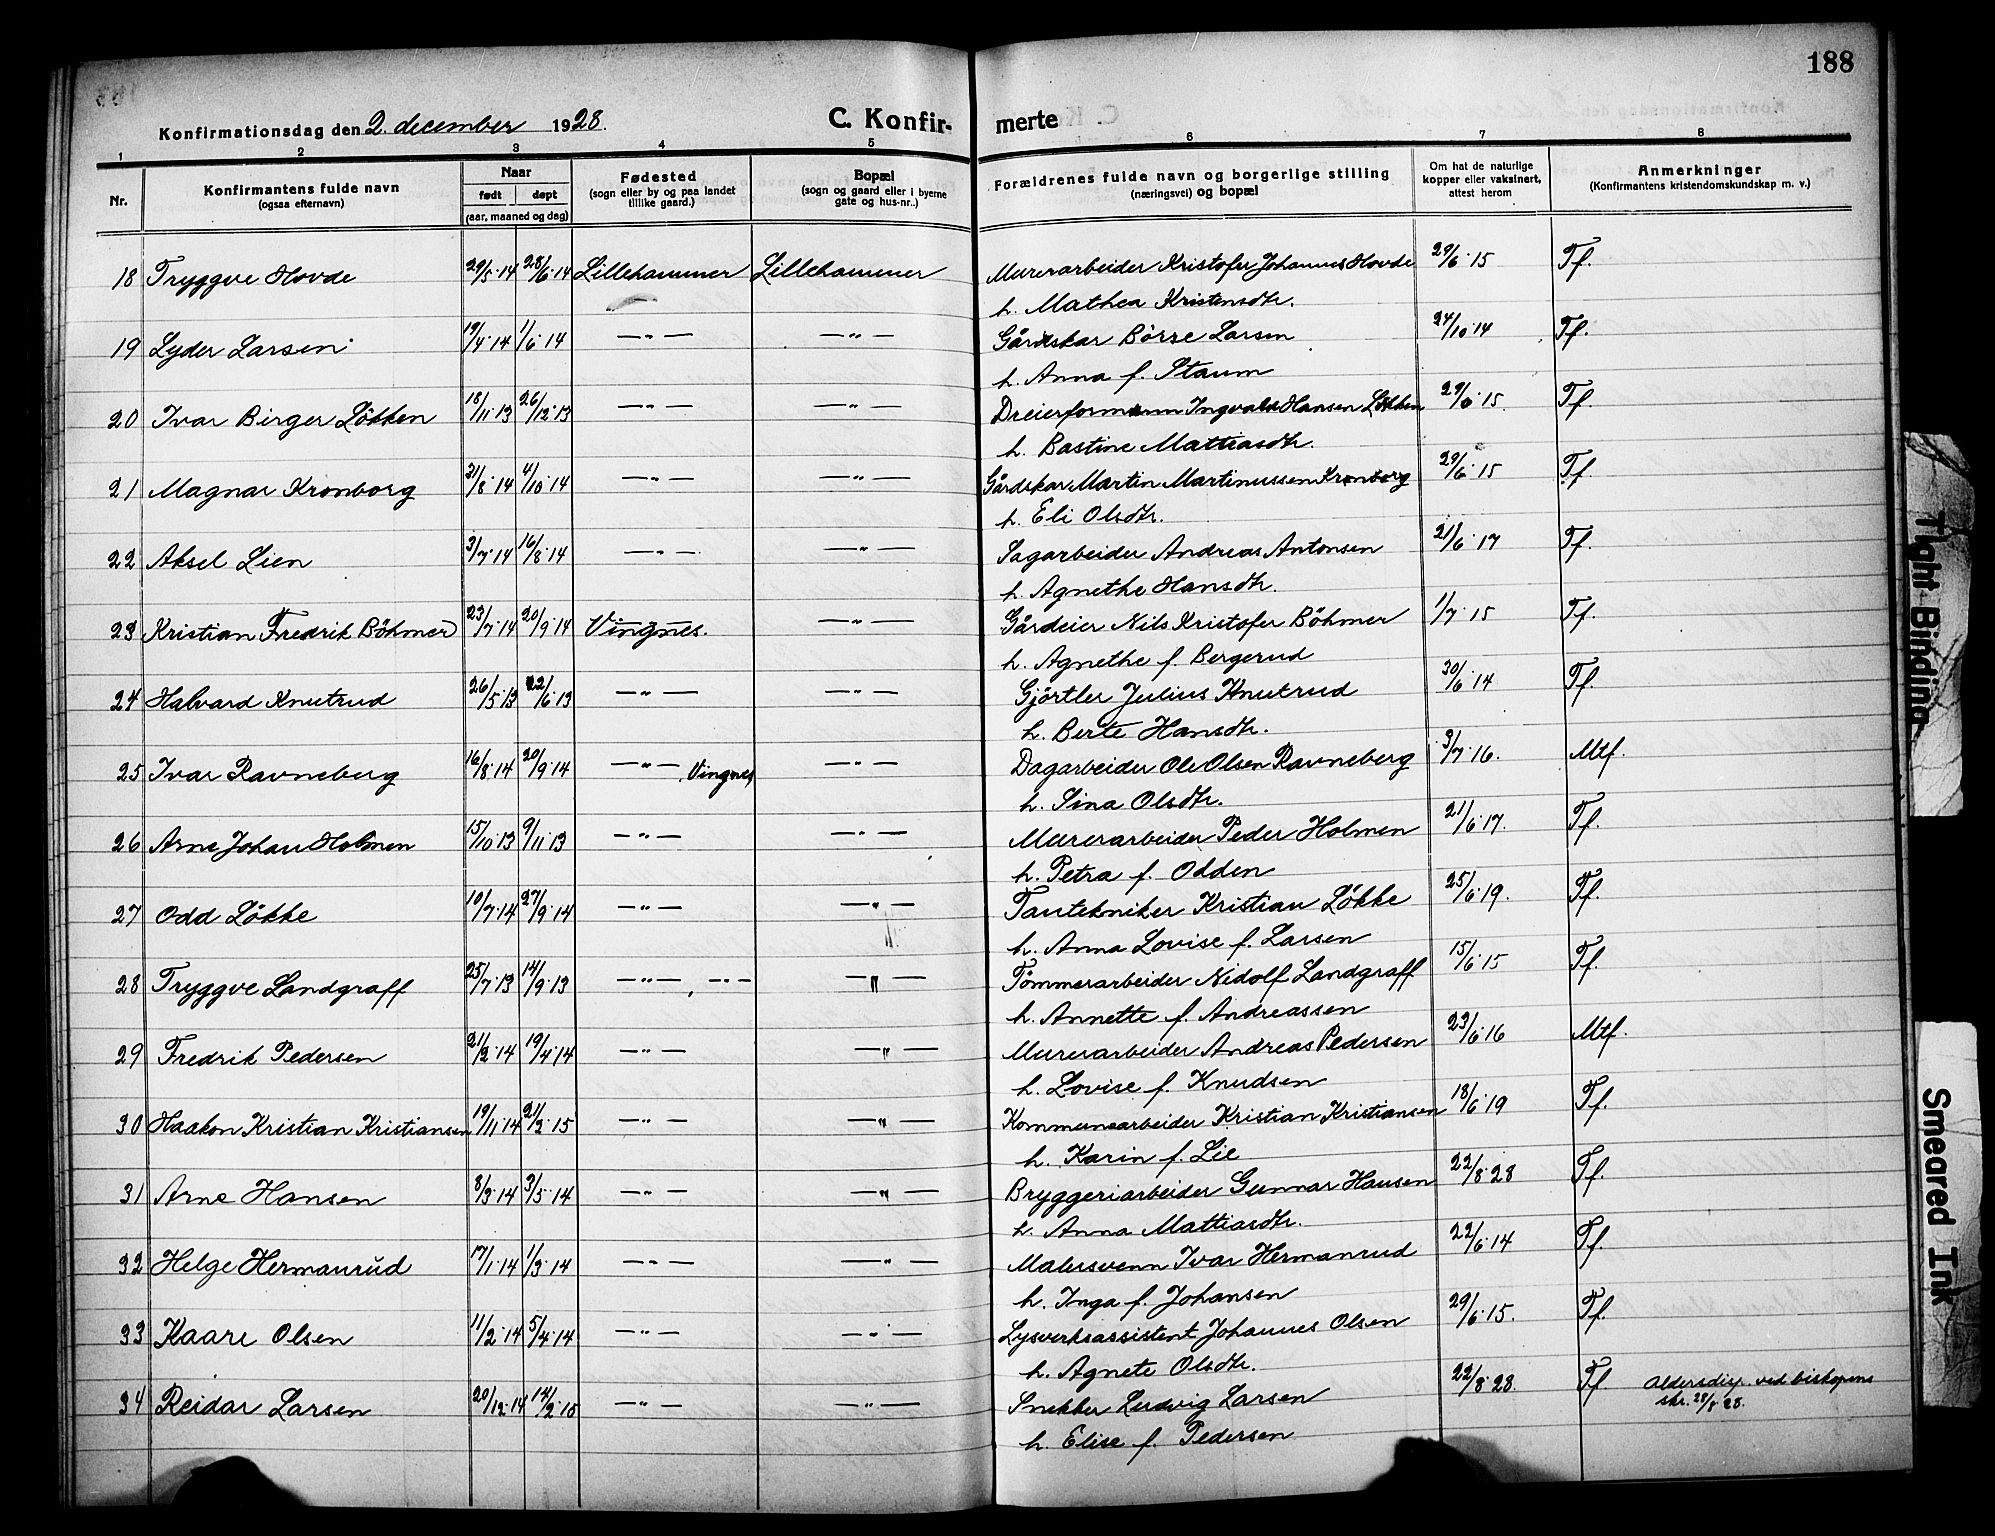 188
Konfirmationsdag den 2. december 1928.
C. Konfirmerte
1 2 3 4 5 6 7 8
Nr.
Konfirmantens fulde navn
(ogsaa efternavn)
Naar
født døpt
(aar, maaned og dag)
Fødested
(sogn eller by og paa landet
tillike gaard.)
Bopæl
(sogn og gaard eller i byerne
gate og hus-nr..)
Forældrenes fulde navn og borgerlige stilling
(næringsvei) og bopæl
Om hat de naturlige
kopper eller vaksinert,
attest herom
Anmerkninger
(Konfirmantens kristendomskundskap m. v.)
18 Tryggve Hovde 29/5·14 28/6·14 Lillehammer Lillehammer Murerarbeider Kristofer Johannes Hovde 29/6·15 Tf.
h. Mathea Kristensdtr.
19 Lyder Larsen 19/4·14 1/6·14 —"— —"— Gårdskar Börre Larsen 24/10·14 Tf.
h. Anna f. Staum
20 Ivar Birger Lökken 18/11·13 26/12·13 —"— —"— Dreierformann Ingvald Hansen Lökken 29/6·15. Tf.
h. Bastine Mattiasdtr.
21 Magnar Kronborg 31/8·14 4/10·14 —"— —"— Gårdskar Martin Martinussen Kronborg 29/6·15 Tf.
h. Eli Olsdtr.
22 Aksel Lien 3/7·14 16/8·14 —"— —"— Sagarbeider Andreas Antonsen 21/6·17 Tf.
h. Agnethe Hansdtr.
23 Kristian Fredrik Böhmer 23/7·14 20/9·14 Vingnes. —"— Gårdeier Nils Kristofer Böhmer 1/7·15 Tf.
h. Agnethe f. Bergerud
24 Halvard Knutrud 26/5·13 22/6·13 —"— —"— Gjörtler Julius Knutrud 30/6·14 Tf.
h. Berte Hansdtr.
25 Ivar Ravneberg 16/8·14 20/9·14 —"— , Vingnes —"— Dagarbeider Ole Olsen Ravneberg 3/7·16. Mtf.
h. Sina Olsdtr.
26 Arne Johan Holmen 15/10·13 9/11·13 —"— —"— Murerarbeider Peder Holmen 21/6·17. Tf.
h. Petra f. Odden
27 Odd Lökke 10/7·14 27/9·14 —"— —"— Tantekniker Kristian Lökke 25/6·19. Tf.
h. Anna Lovise f. Larsen
28 Tryggve Landgraff 25/7·13 14/9·13 —"— , —"— —"— Tömmerarbeider Nidolf Landgraff 15/6·15 Tf.
h. Annette f. Andreassen
29 Fredrik Pedersen 21/2·14 19/4·14 —"— —"— Murerarbeider Andreas Pedersen 23/6·16 Mtf.
h. Lovise f. Knudsen
30 Haakon Kristian Kristiansen 19/11·14 21/2·15 —"— —"— Kommunearbeider Kristian Kristiansen 18/6·19 Tf.
h. Karin f. Lie
31 Arne Hansen 8/3·14 3/5·14 —"— —"— Bryggeriarbeider Gunnar Hansen 22/8·28 Tf.
h. Anna Mattiasdtr.
32 Helge Hermanrud 17/1·14 1/3·14 —"— —"— Malersvenn Ivar Hermanrud 22/6·14 Tf.
h. Inga f. Johansen
33 Kaare Olsen 11/2·14 5/4·14 —"— —"— Lysverksassistent Johannes Olsen 29/6·15. Tf.
h. Agnete Olsdtr.
34 Reidar Larsen 20/12·14 14/2·15 —"— —"— Snekker Ludvig Larsen 22/8·28. Tf Aldersdisp. ved biskopens
skr. 28/8 28.
h. Elise f. Pedersen
Tight Binding
Smeared Ink